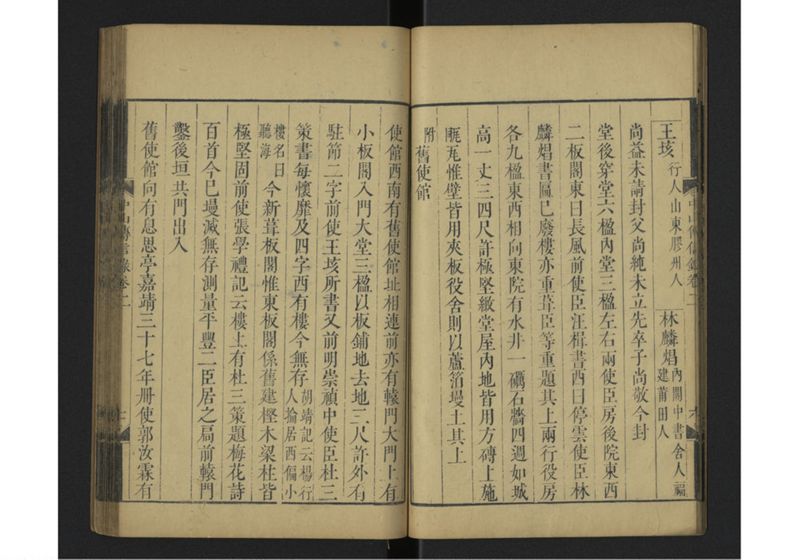 王垓 行人山東膠州人 林麟焻 內閣中書舍人福建莆田人
尚益未請封父尚純未立先卒子尚敬今封
堂後穿堂六楹內堂三楹左右兩使臣房後院東西
二板閣東曰長風前使臣汪楫書西曰停雲使臣林
麟焻書匾已廢樓亦重葺臣等重題其上兩行役房
各九楹東西相向東院有水井一礪石牆四週如城
高一丈三四尺許極堅緻堂屋內地皆用方磚上施
瓪瓦惟壁皆用夾板役舍則以蘆箔墁土其上
附舊使館
使館西南有舊使館址相連前亦有轅門大門上有
小板閣入門大堂三楹以板鋪地去地三尺許外有
駐節二字前使王垓所書又前明崇禎中使臣杜三
策書每懷靡及四字西有樓今無存 胡靖記云楊行人掄居西偏小
樓名曰聽海 今新葺板閣惟東板閣係舊建樫木梁柱皆
極堅固前使張學禮記云樓上有杜三策題梅花詩
百首今已墁滅無存測量平豐二臣居之局前轅門
鑿後垣共門出入
舊使館向有息思亭嘉靖三十七年冊使郭汝霖有
中山傳信錄卷二